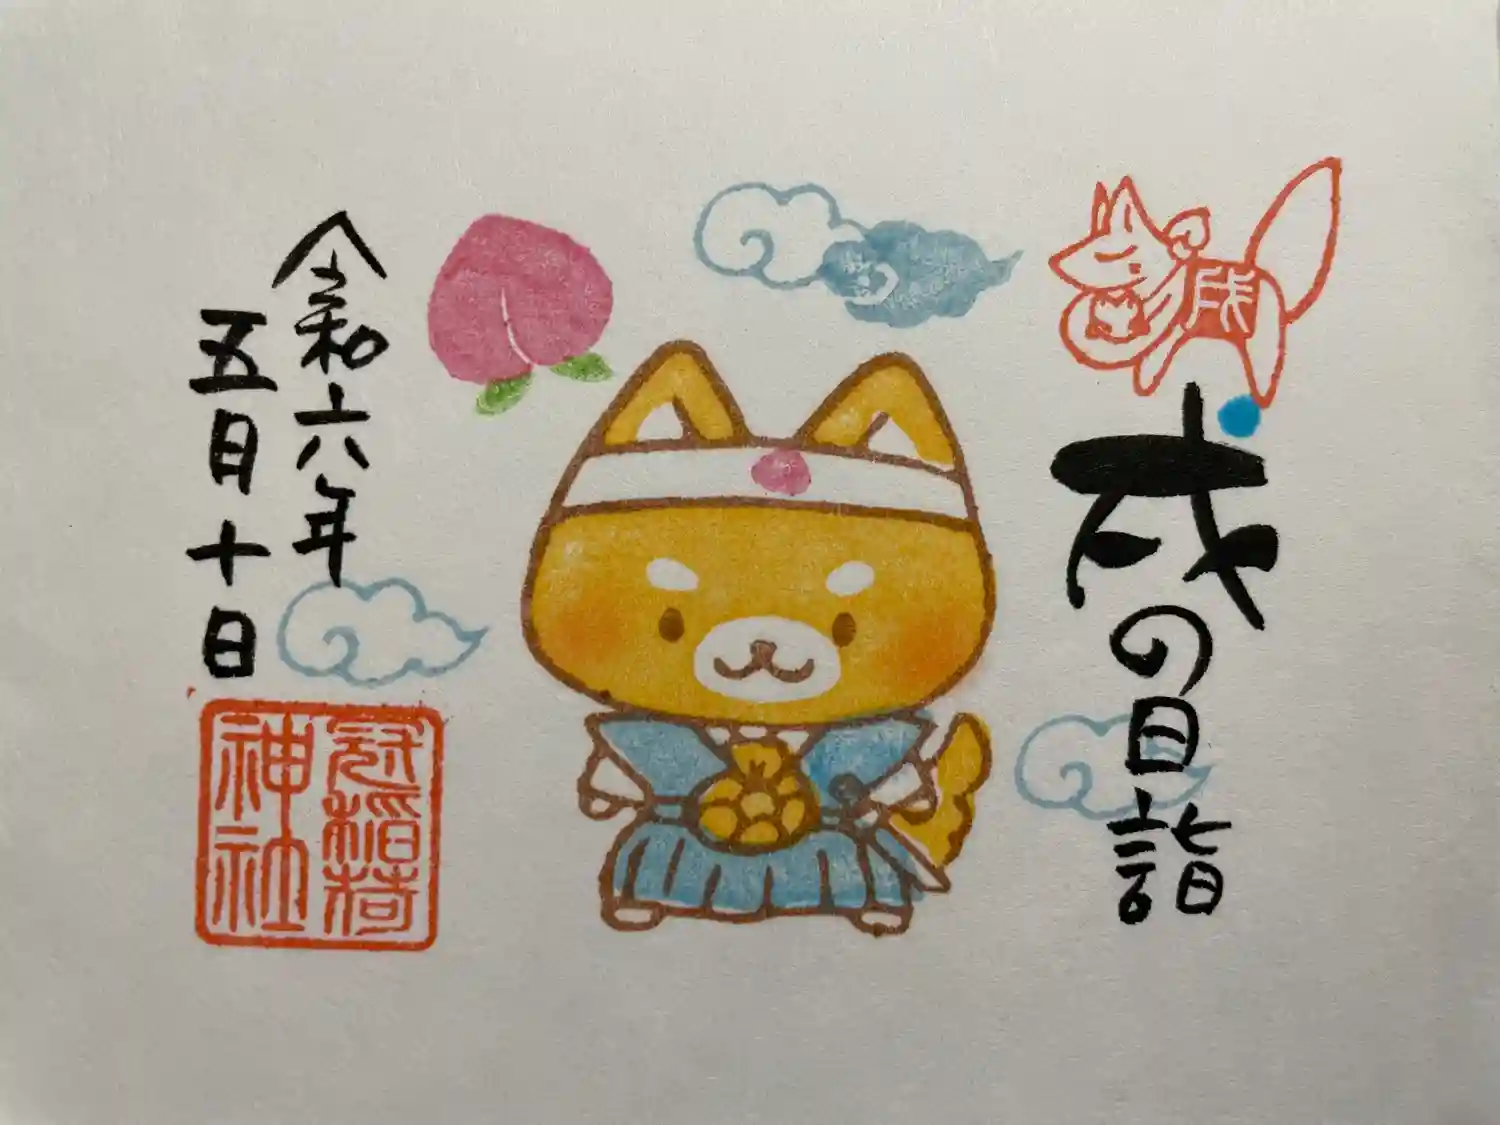 戌
戌の日詣
令和六年
五月十日
冠稲荷
神社